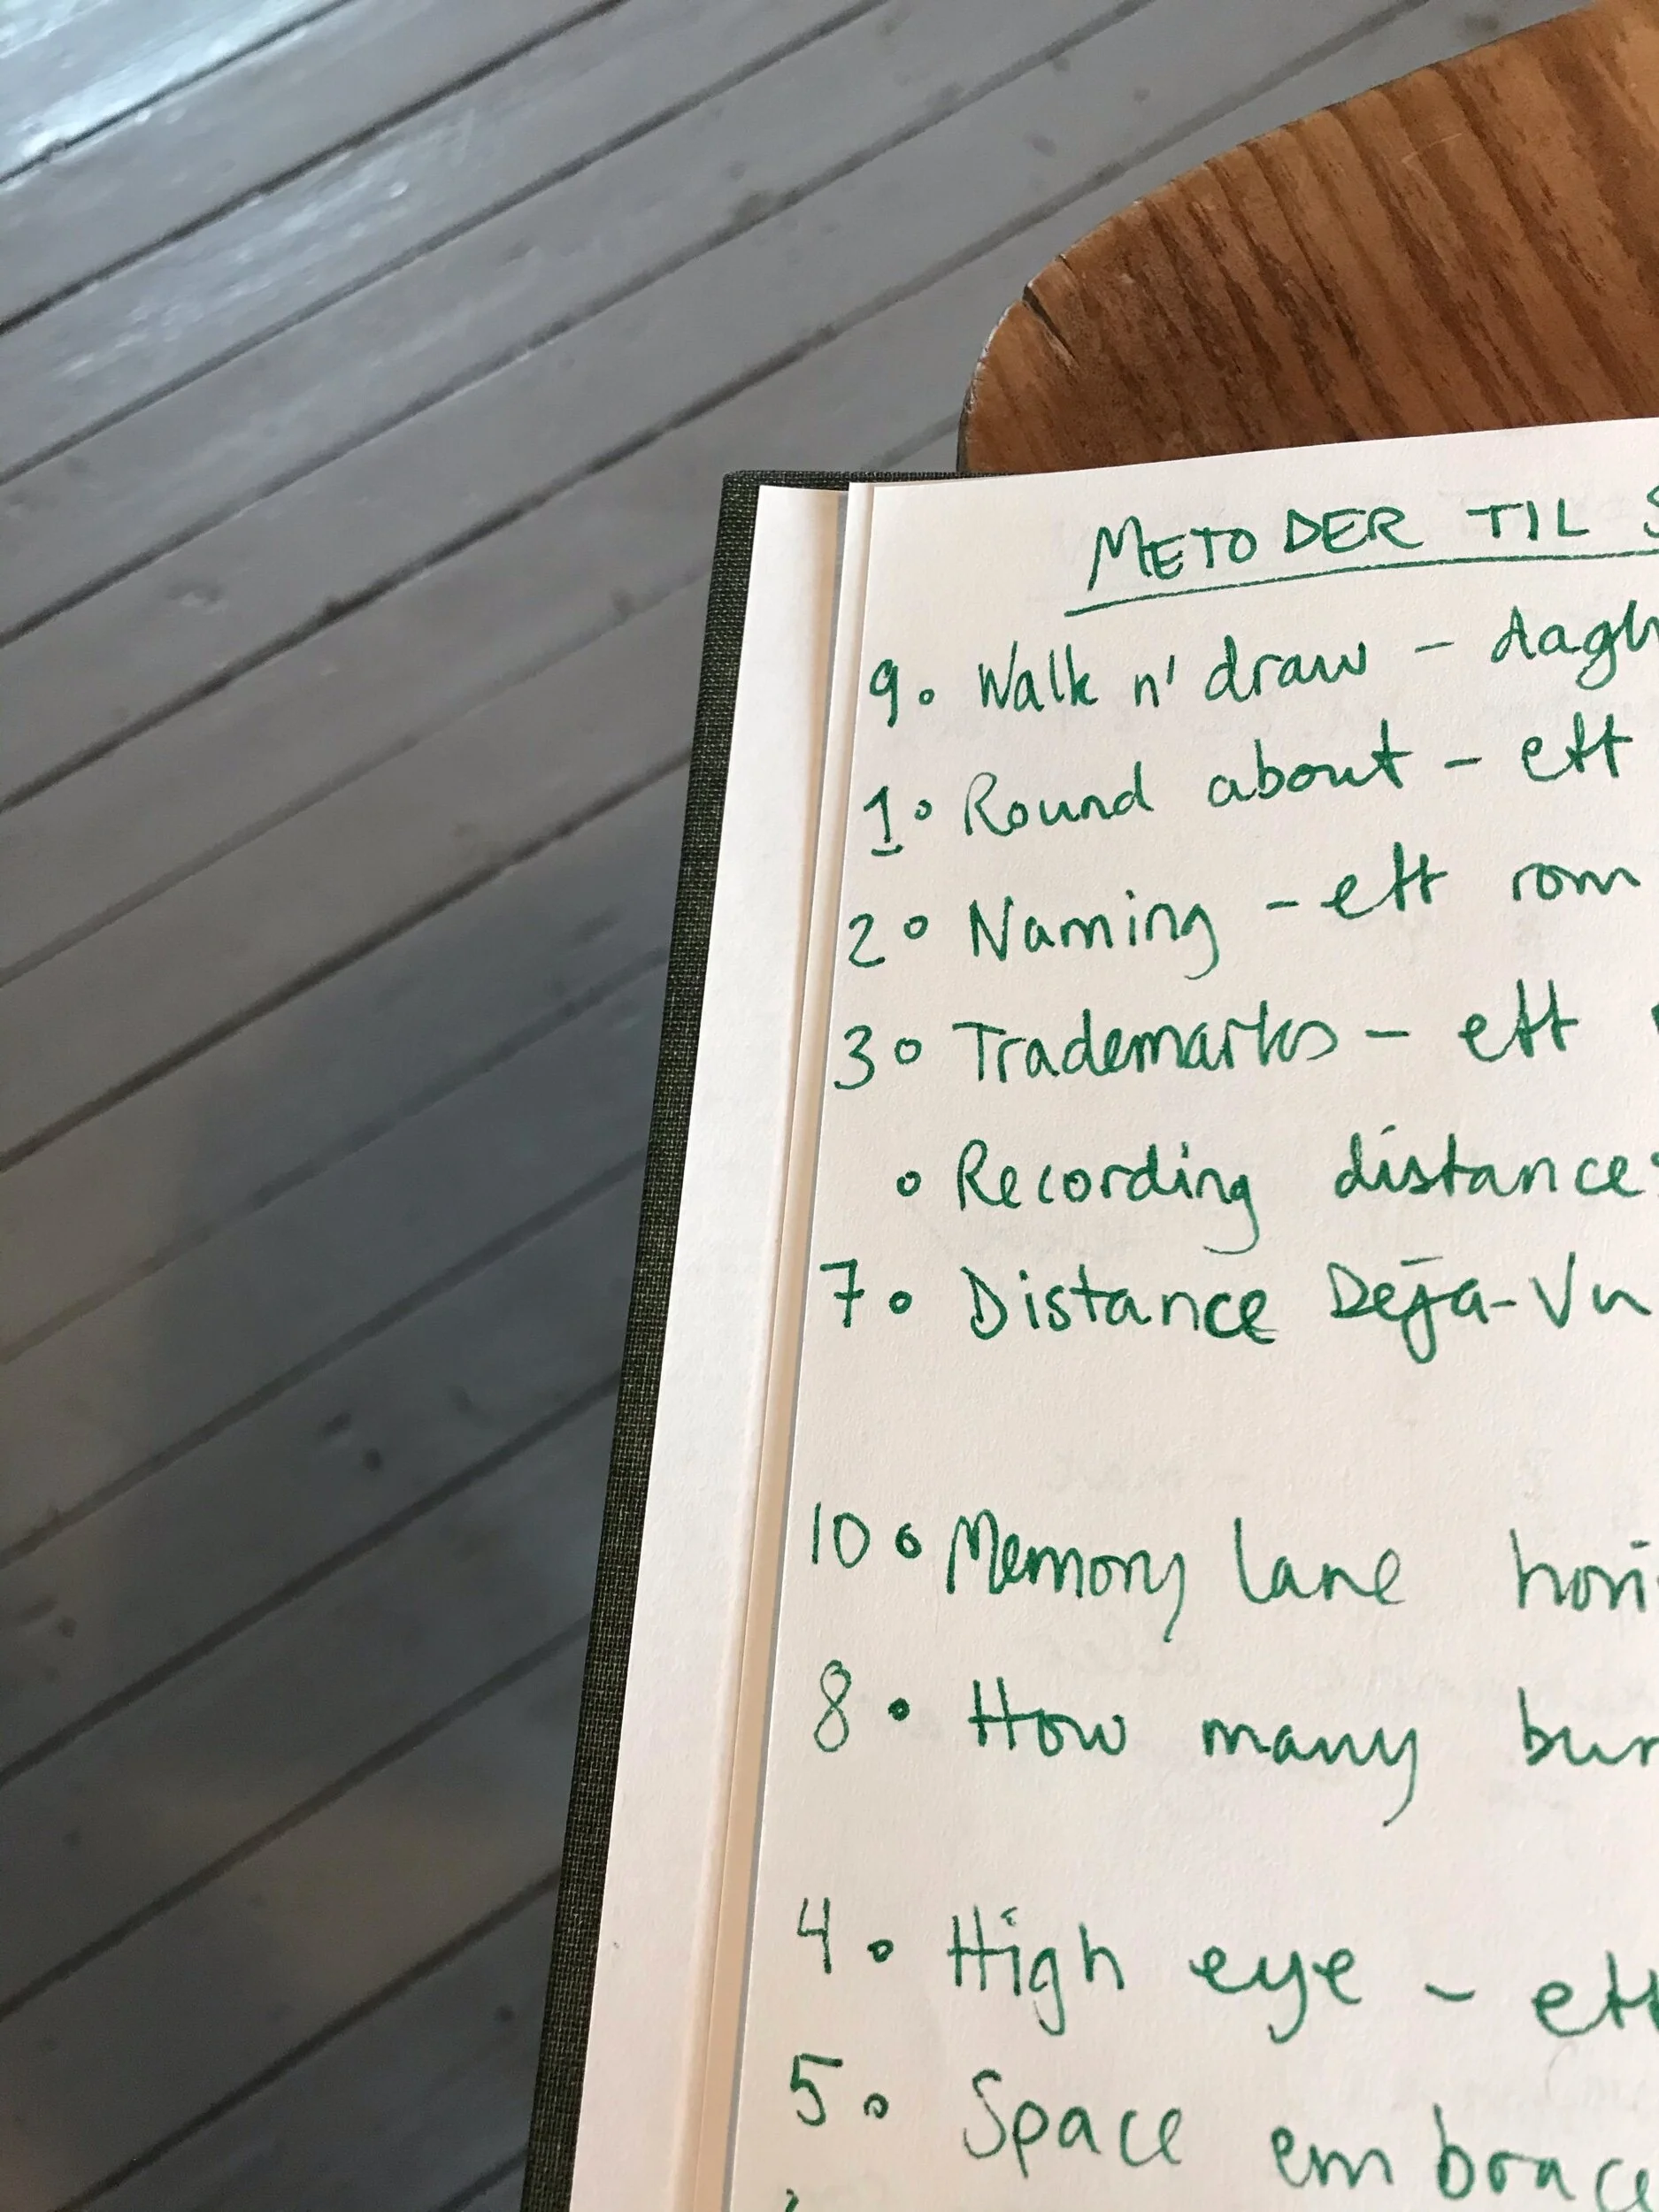 METODER TIL S
9. Walk n' draw - dagl
1. Round about - ett
2. Naming - ett rom
3. Trademarks - ett
Recording distance
7. Distance Deja-Vu
10. Memory lane hori
8. How many bur
4. High eye - ett
5. Space embrace